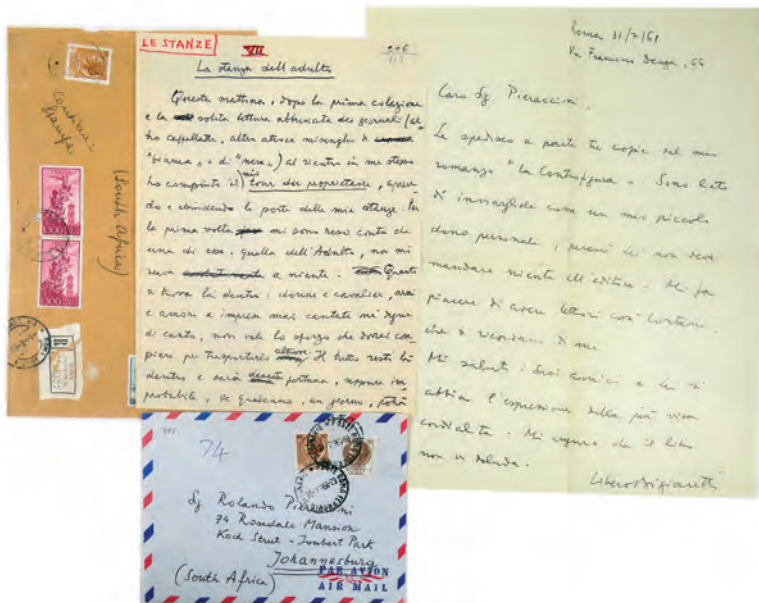 Contiene
Stampe
(South Africa)
LE STANZE
VII
La stanza dell'adulto
Questa mattina, dopo la prima colazione
e la solita lettura abbinata dei giornali (al-
tro cappellate, altro atroce miscuglio di
"bianca" e di "nera") al rientro in me stesso
ho compiuto il mio tour del proprietario, apren-
do e chiudendo le porte delle mie stanze. Per
la prima volta mi sono reso conto che
una di esse, quella dell'Adulto, non mi
serve a niente. Quanto
si trova là dentro: donne e cavalier, armi
e amori e imprese mai cantate né degne
di canto, non vale lo sforzo che dovrei com-
piere per trasportarlo altrove. Il tutto resti là
dentro e sarà fortuna, seppure im-
probabile, se qualcuno, un giorno, potrà
Roma 31/7/68
Via Francesco Denza, 66
Caro Sg. Pieraccini,
Le spedisco a parte tre copie del mio
romanzo "La Controfigura". Sono lieto
di inviargliele come un mio piccolo
dono personale, perciò lei non deve
mandare niente all'editore. Mi fa
piacere di avere lettori così lontani
che si ricordano di me.
Mi saluti i suoi amici e Lei si
abbia l'espressione della più viva
cordialità. Mi auguro che il libro
non vi deluda.
Libero Bigiaretti
74
Sg Rolando Pieraccini
74 Rosedale Mansion
Koch Street - Joubert Park
Johannesburg
(South Africa)
PAR AVION
AIR MAIL